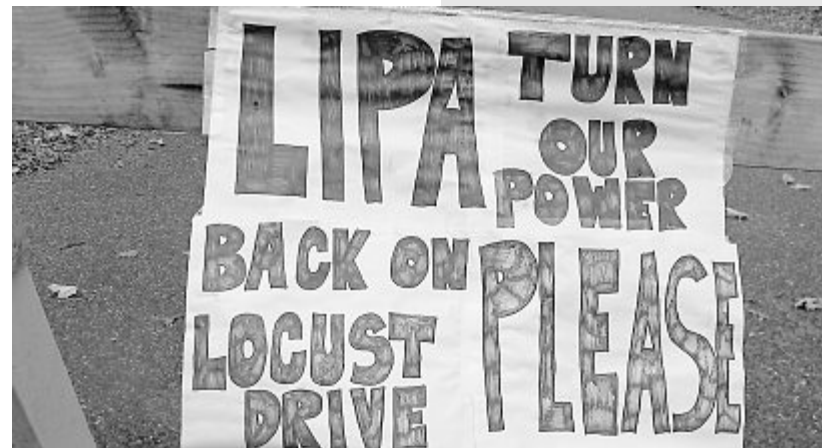 LIPA TURN
OUR
POWER
BACK ON PLEASE
LOCUST
DRIVE